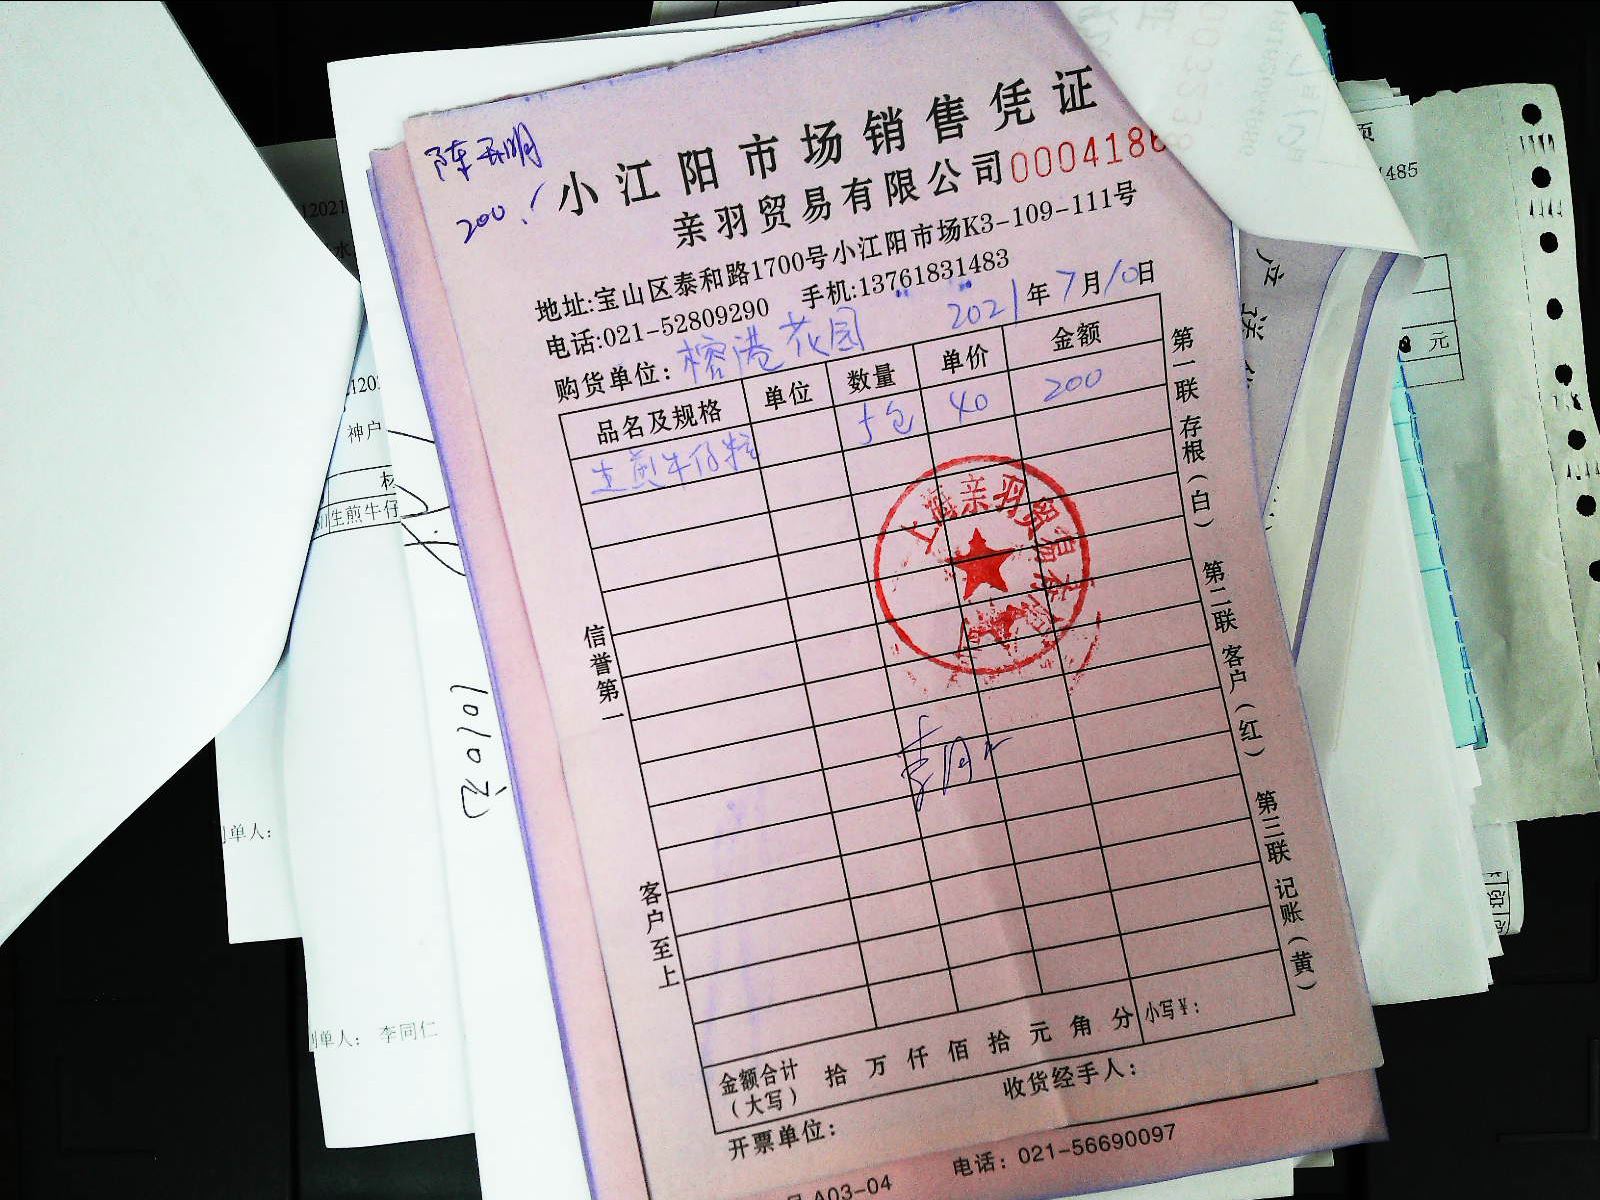 陈开明
200.
小江阳市场销售凭证
亲羽贸易有限公司 0004186
地址:宝山区泰和路1700号小江阳市场K3-109-111号
电话:021-52809290 手机:13761831483
购货单位: 榕港花园 2021年7月10日
品名及规格 单位 数量 单价 金额
生煎牛仔粒 5包 40 200
第一联 存根(白) 第二联 客户(红) 第三联 记账(黄)
信誉第一
客户至上
上海亲羽贸易有限公司
金额合计(大写) 拾 万 仟 佰 拾 元 角 分 小写¥:
开票单位: 收货经手人:
A03-04 电话: 021-56690097
12021
水
神户
生煎牛仔
1010元
制单人:
制单人: 李同仁
页
1485
元